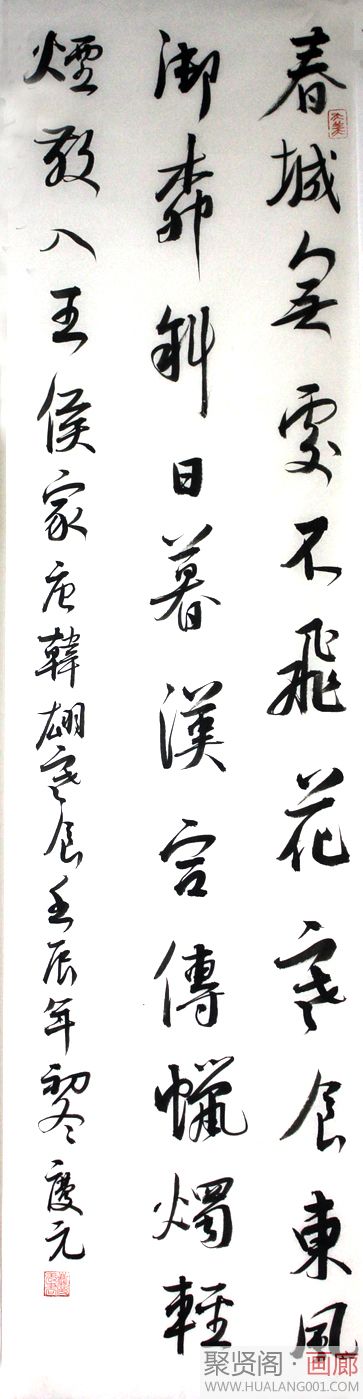 春城無處不飛花寒食東風
御柳斜日暮漢宮傳蠟燭輕
煙散入王侯家唐韓翃寒食壬辰年初冬慶元
聚贤阁·画廊
WWW.HUALANG001.COM